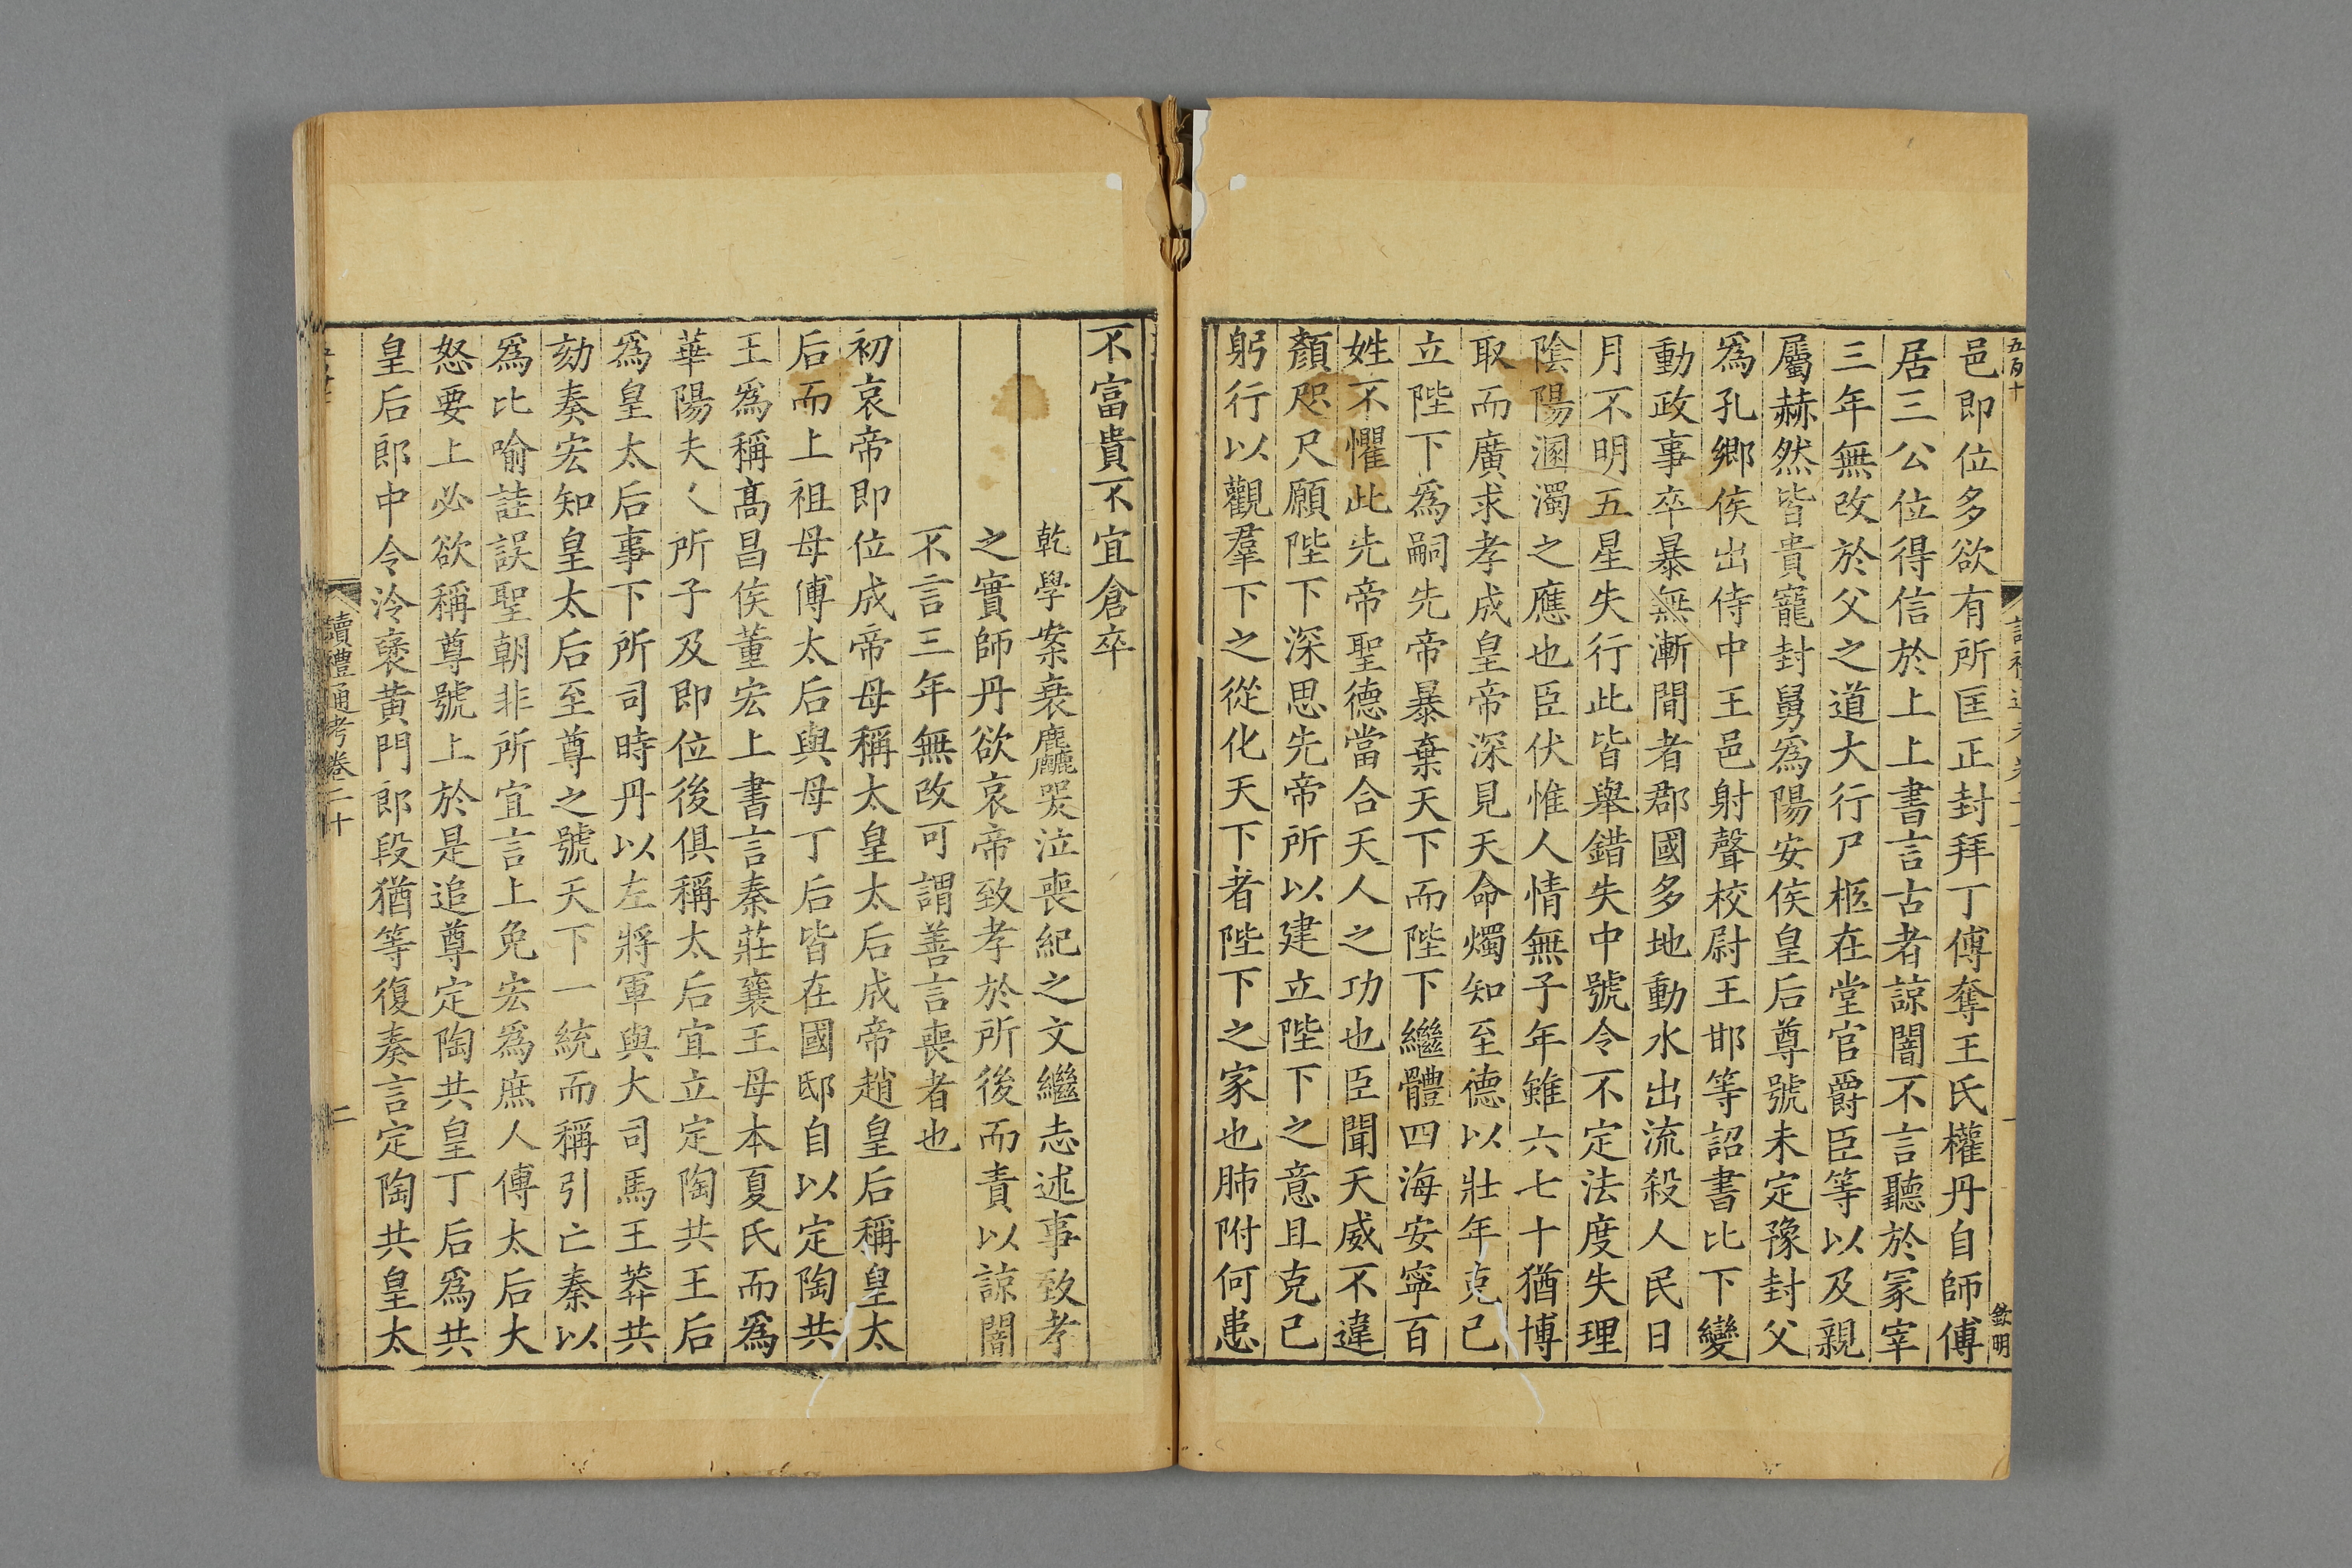 邑即位多欲有所匡正封拜丁傅奪王氏權丹自師傅
居三公位得信於上上書言古者諒闇不言聽於冢宰
三年無改於父之道大行尸柩在堂官爵臣等以及親
屬赫然皆貴寵封舅為陽安侯皇后尊號未定豫封父
為孔鄉侯出侍中王邑射聲校尉王邯等詔書比下變
動政事卒暴無漸間者郡國多地動水出流殺人民日
月不明五星失行此皆舉錯失中號令不定法度失理
陰陽溷濁之應也臣伏惟人情無子年雖六七十猶博
取而廣求孝成皇帝深見天命燭知至德以壯年克己
立陛下為嗣先帝暴棄天下而陛下繼體四海安寧百
姓不懼此先帝聖德當合天人之功也臣聞天威不違
顏咫尺願陛下深思先帝所以建立陛下之意且克己
躬行以觀羣下之從化天下者陛下之家也肺附何患
不富貴不宜倉卒
乾學案衰麤哭泣喪紀之文繼志述事致孝
之實師丹欲哀帝致孝於所後而責以諒闇
不言三年無改可謂善言喪者也
初哀帝即位成帝母稱太皇太后成帝趙皇后稱皇太
后而上祖母傅太后與母丁后皆在國邸自以定陶共
王為稱高昌侯董宏上書言秦莊襄王母本夏氏而為
華陽夫人所子及即位後俱稱太后宜立定陶共王后
為皇太后事下所司時丹以左將軍與大司馬王莽共
劾奏宏知皇太后至尊之號天下一統而稱引亡秦以
為比喻詿誤聖朝非所宜言上免宏為庶人傅太后大
怒要上必欲稱尊號上於是追尊定陶共皇丁后為共
皇后郎中令泠褒黄門郎段猶等復奏言定陶共皇太
讀禮通考卷二十
二